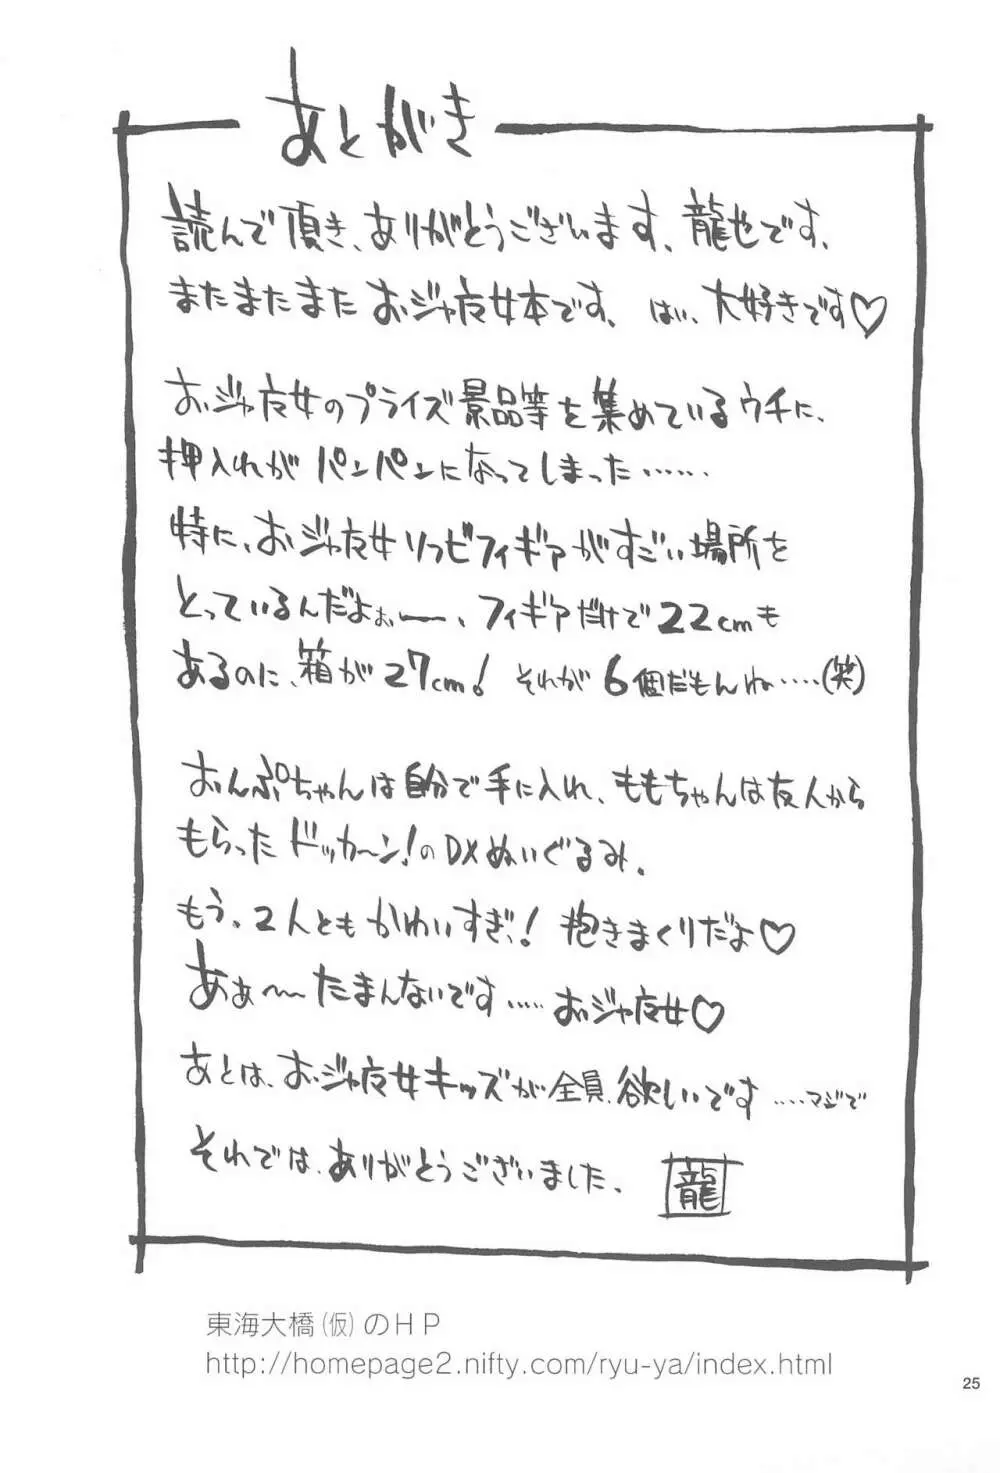 あとがき
読んで頂き、ありがとうございます、龍也です、
またまたまた おジャ魔女本です、はい、大好きです♡
おジャ魔女のプライズ景品等を集めているウチに、
押入れが パンパンになってしまった……
特に、おジャ魔女ソフビフィギアがすごい場所を
とっているんだよぉー、フィギアだけで22cmも
あるのに、箱が27cm! それが6個だもんね……(笑)
おんぷちゃんは自分で手に入れ、ももちゃんは友人から
もらった ドッカ〜ン!のDXぬいぐるみ。
もう。2人とも かわいすぎ! 抱きまくりだよ♡
あぁ〜〜たまんないです……おジャ魔女♡
あとは、おジャ魔女キッズが全員、欲しいです ……マジで
それでは、ありがとうございました。 龍
東海大橋(仮)のHP
http://homepage2.nifty.com/ryu-ya/index.html
25